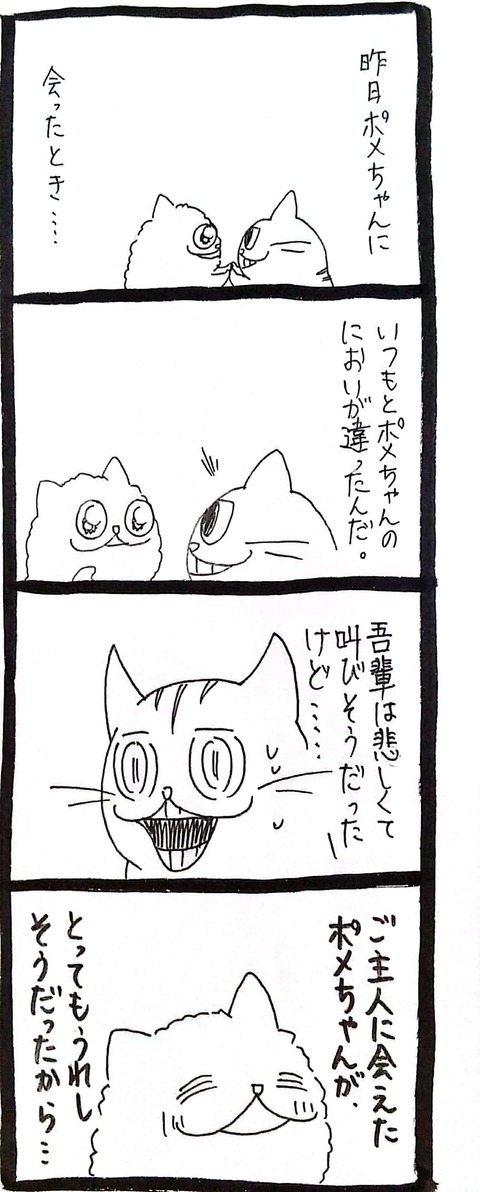 昨日ポメちゃんに
会ったとき…
いつもとポメちゃんの
においが違ったんだ。
吾輩は悲しくて
叫びそうだった
けど……
ご主人に会えた
ポメちゃんが、
とってもうれし
そうだったから…